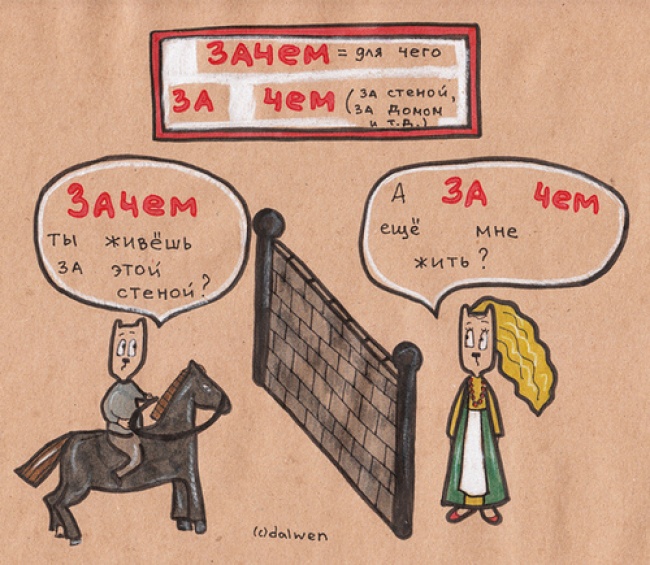 ЗАЧЕМ = для чего
ЗА ЧЕМ (ЗА СТЕНОЙ,
ЗА ДОМОМ
И Т.Д.)
ЗАЧЕМ
ТЫ ЖИВЁШЬ
ЗА ЭТОЙ
СТЕНОЙ?
А ЗА ЧЕМ
ЕЩЁ МНЕ
ЖИТЬ?
(c)dalwen